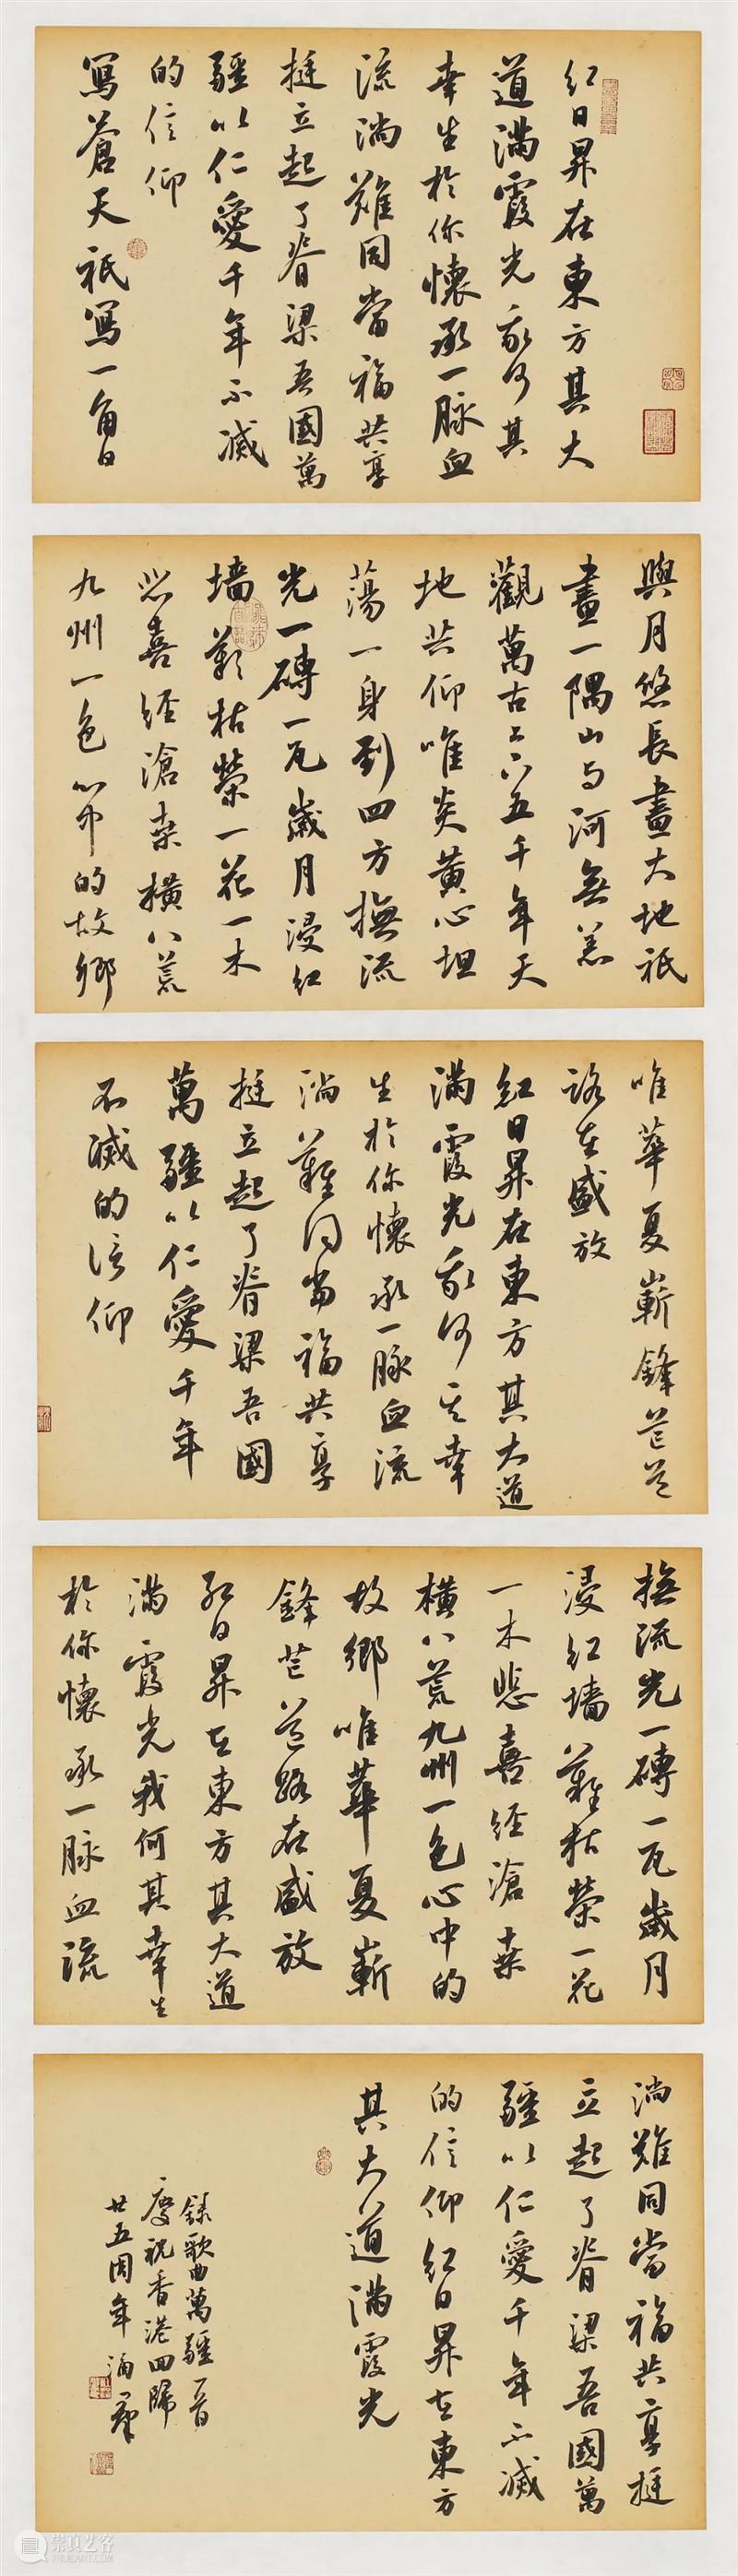 紅日昇在東方其大
道滿霞光我何其
幸生於你懷承一脉血
流淌難同當福共享
挺立起了脊梁吾國萬
疆以仁愛千年不滅
的信仰
寫蒼天祇寫一角日
與月悠長畫大地祇
畫一隅山与河無恙
觀萬古上下五千年天
地共仰唯炎黄心坦
蕩一身到四方撫流
光一磚一瓦歲月浸紅
墻歎枯榮一花一木
悲喜經滄桑横八荒
九州一色心中的故鄉
唯華夏嶄鋒芒道
路在盛放
紅日昇在東方其大道
滿霞光我何其幸
生於你懷承一脉血流
淌難同當福共享
挺立起了脊梁吾國
萬疆以仁愛千年
不滅的信仰
撫流光一磚一瓦歲月
浸紅墻歎枯榮一花
一木悲喜經滄桑
横八荒九州一色心中的
故鄉唯華夏嶄
鋒芒道路在盛放
紅日昇在東方其大道
滿霞光我何其幸生
於你懷承一脉血流
淌難同當福共享挺
立起了脊梁吾國萬
疆以仁愛千年不滅
的信仰紅日昇在東方
其大道滿霞光
錄歌曲萬疆一首
慶祝香港回歸
廿五周年
崇真艺客